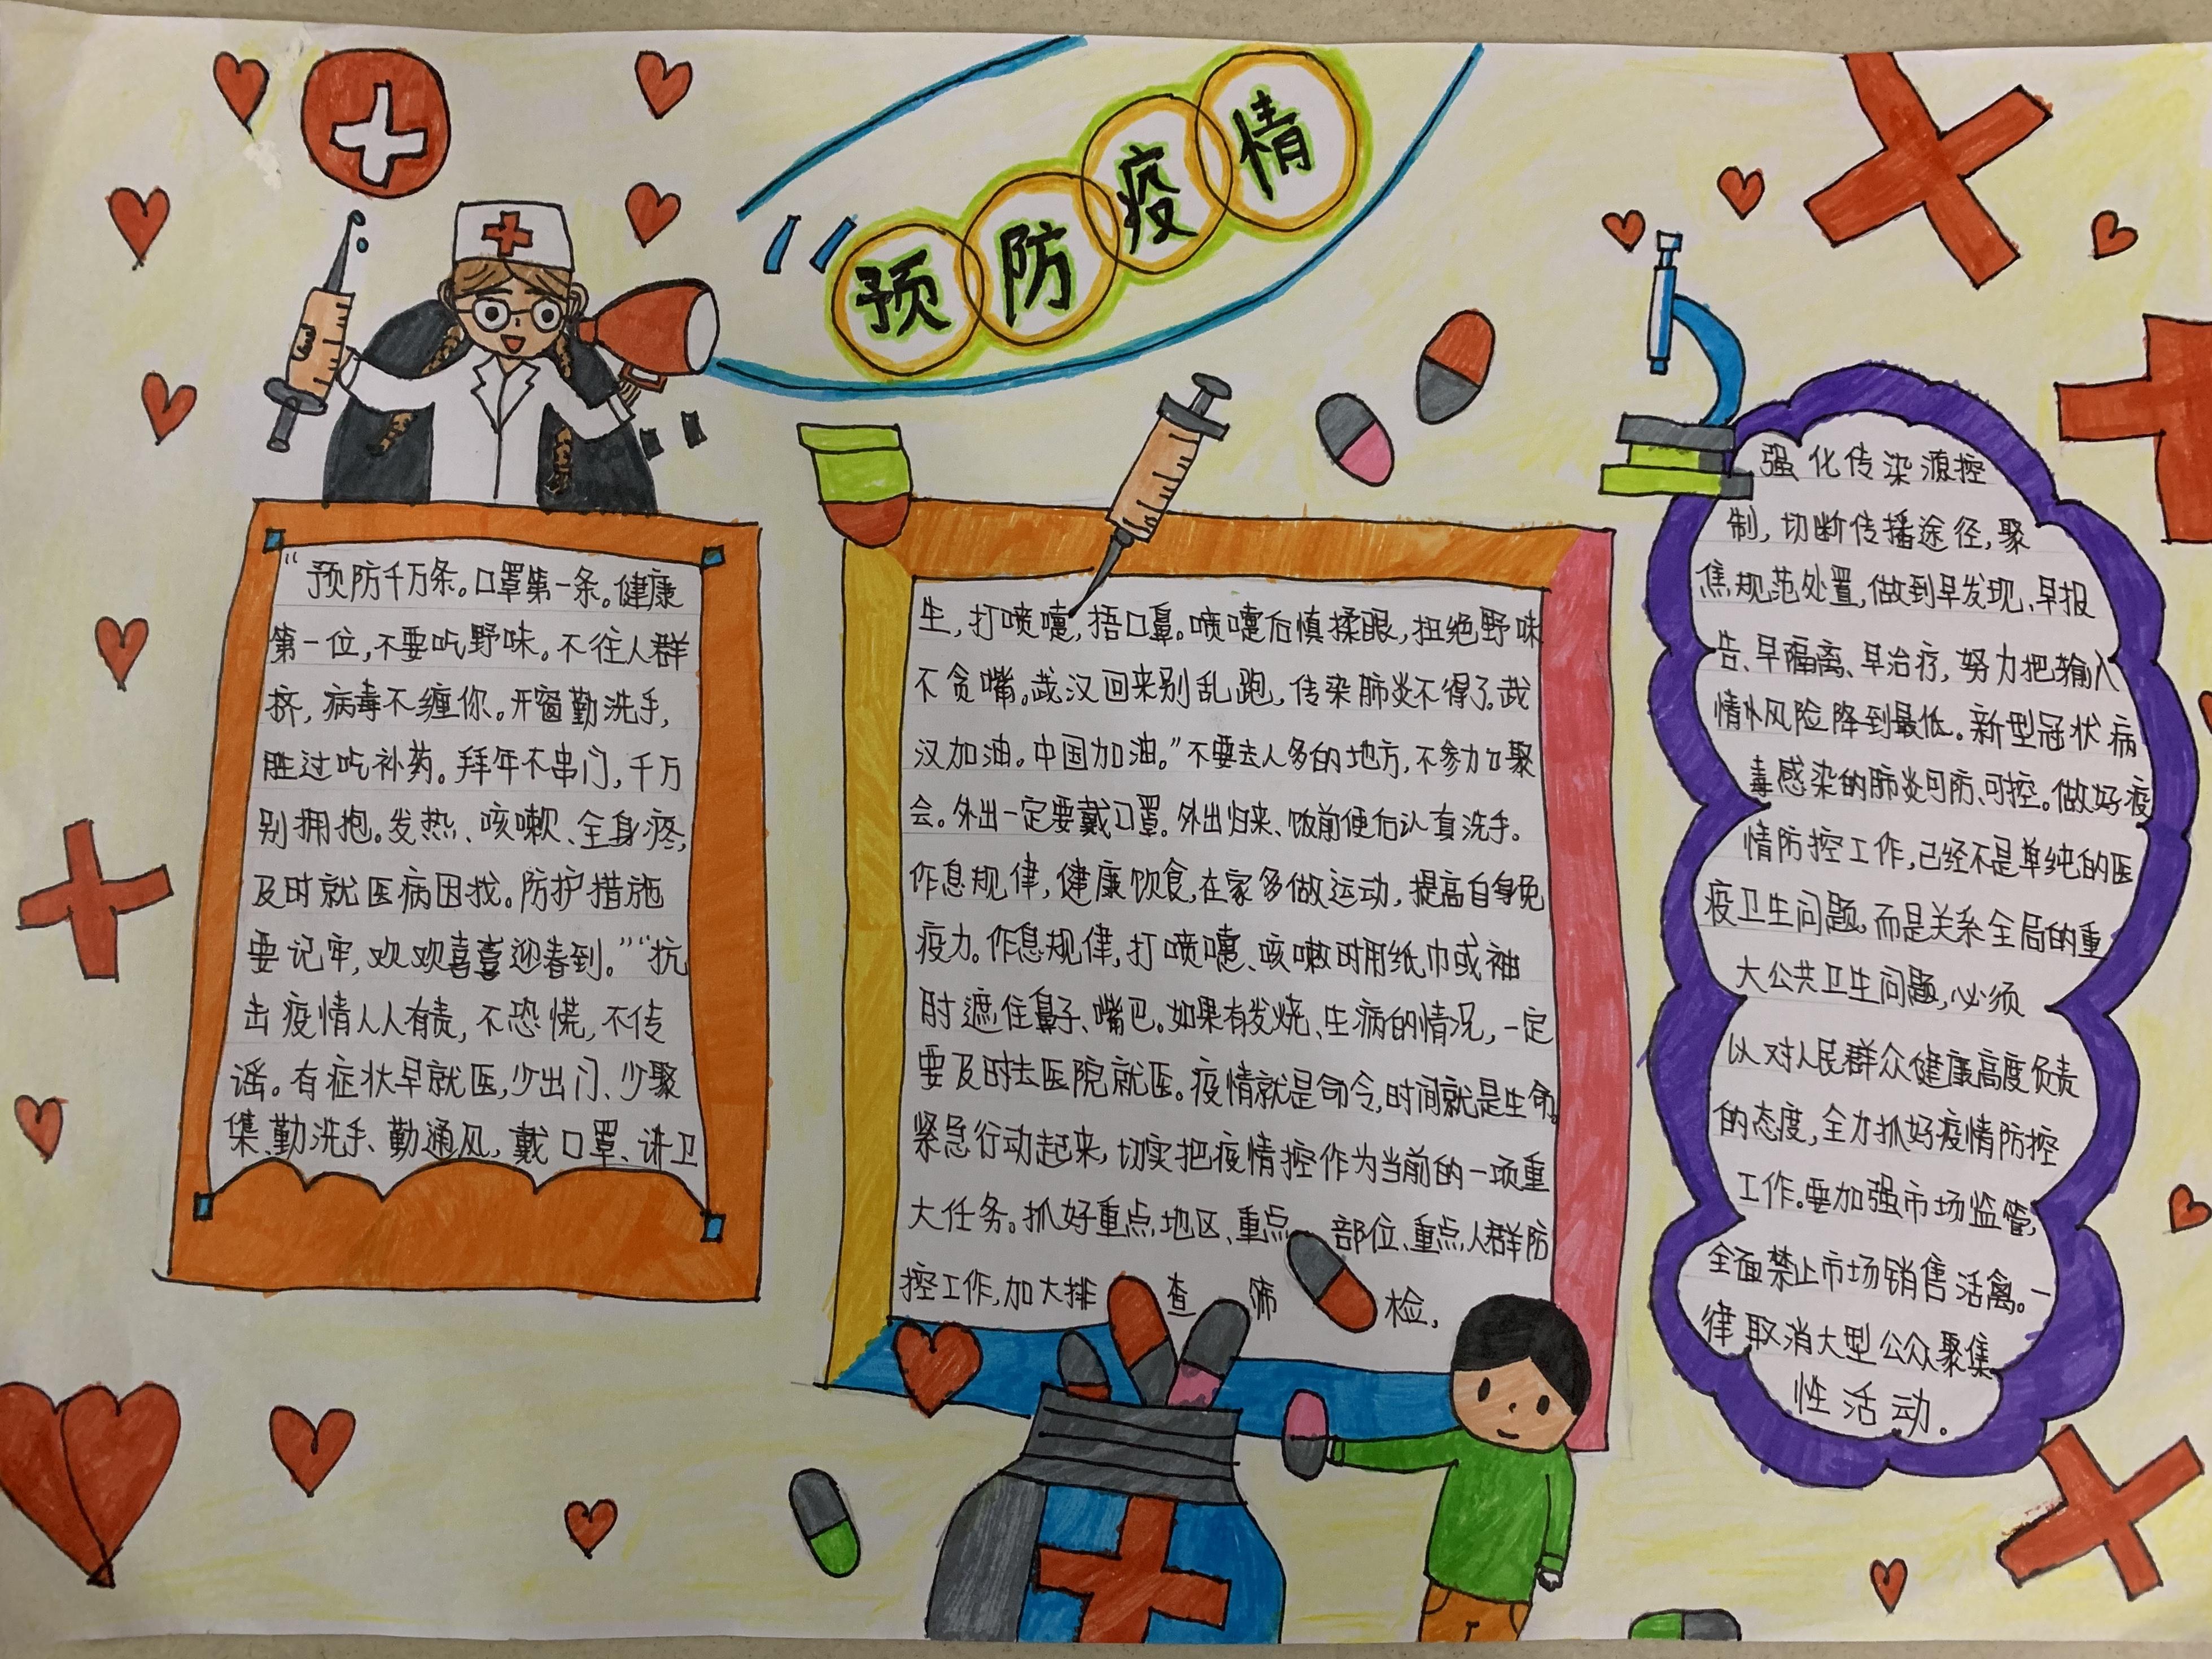 预防疫情
“预防千万条。口罩第一条。健康
第一位,不要吃野味。不往人群
挤,病毒不缠你。开窗勤洗手,
胜过吃补药。拜年不串门,千万
别拥抱。发热、咳嗽、全身疼,
及时就医病因找。防护措施
要记牢,欢欢喜喜迎春到。”“抗
击疫情人人有责,不恐慌,不传
谣。有症状早就医,少出门、少聚
集、勤洗手、勤通风,戴口罩、讲卫
生,打喷嚏,捂口鼻。喷嚏后慎揉眼,拒绝野味
不贪嘴。武汉回来别乱跑,传染肺炎不得了。武
汉加油。中国加油。”不要去人多的地方,不参加聚
会。外出一定要戴口罩。外出归来、饭前便后认真洗手。
作息规律,健康饮食,在家多做运动,提高自身免
疫力。作息规律,打喷嚏、咳嗽时用纸巾或袖
肘遮住鼻子、嘴巴。如果有发烧、生病的情况,一定
要及时去医院就医。疫情就是命令,时间就是生命。
紧急行动起来,切实把疫情控作为当前的一项重
大任务。抓好重点地区、重点部位、重点人群防
控工作,加大排查筛检,
强化传染源控
制,切断传播途径,聚
焦规范处置,做到早发现、早报
告、早隔离、早治疗,努力把输入
情外风险降到最低。新型冠状病
毒感染的肺炎可防、可控。做好疫
情防控工作,已经不是单纯的医
疫卫生问题,而是关系全局的重
大公共卫生问题,必须
以对人民群众健康高度负责
的态度,全力抓好疫情防控
工作。要加强市场监管,
全面禁止市场销售活禽。一
律取消大型公众聚集
性活动.